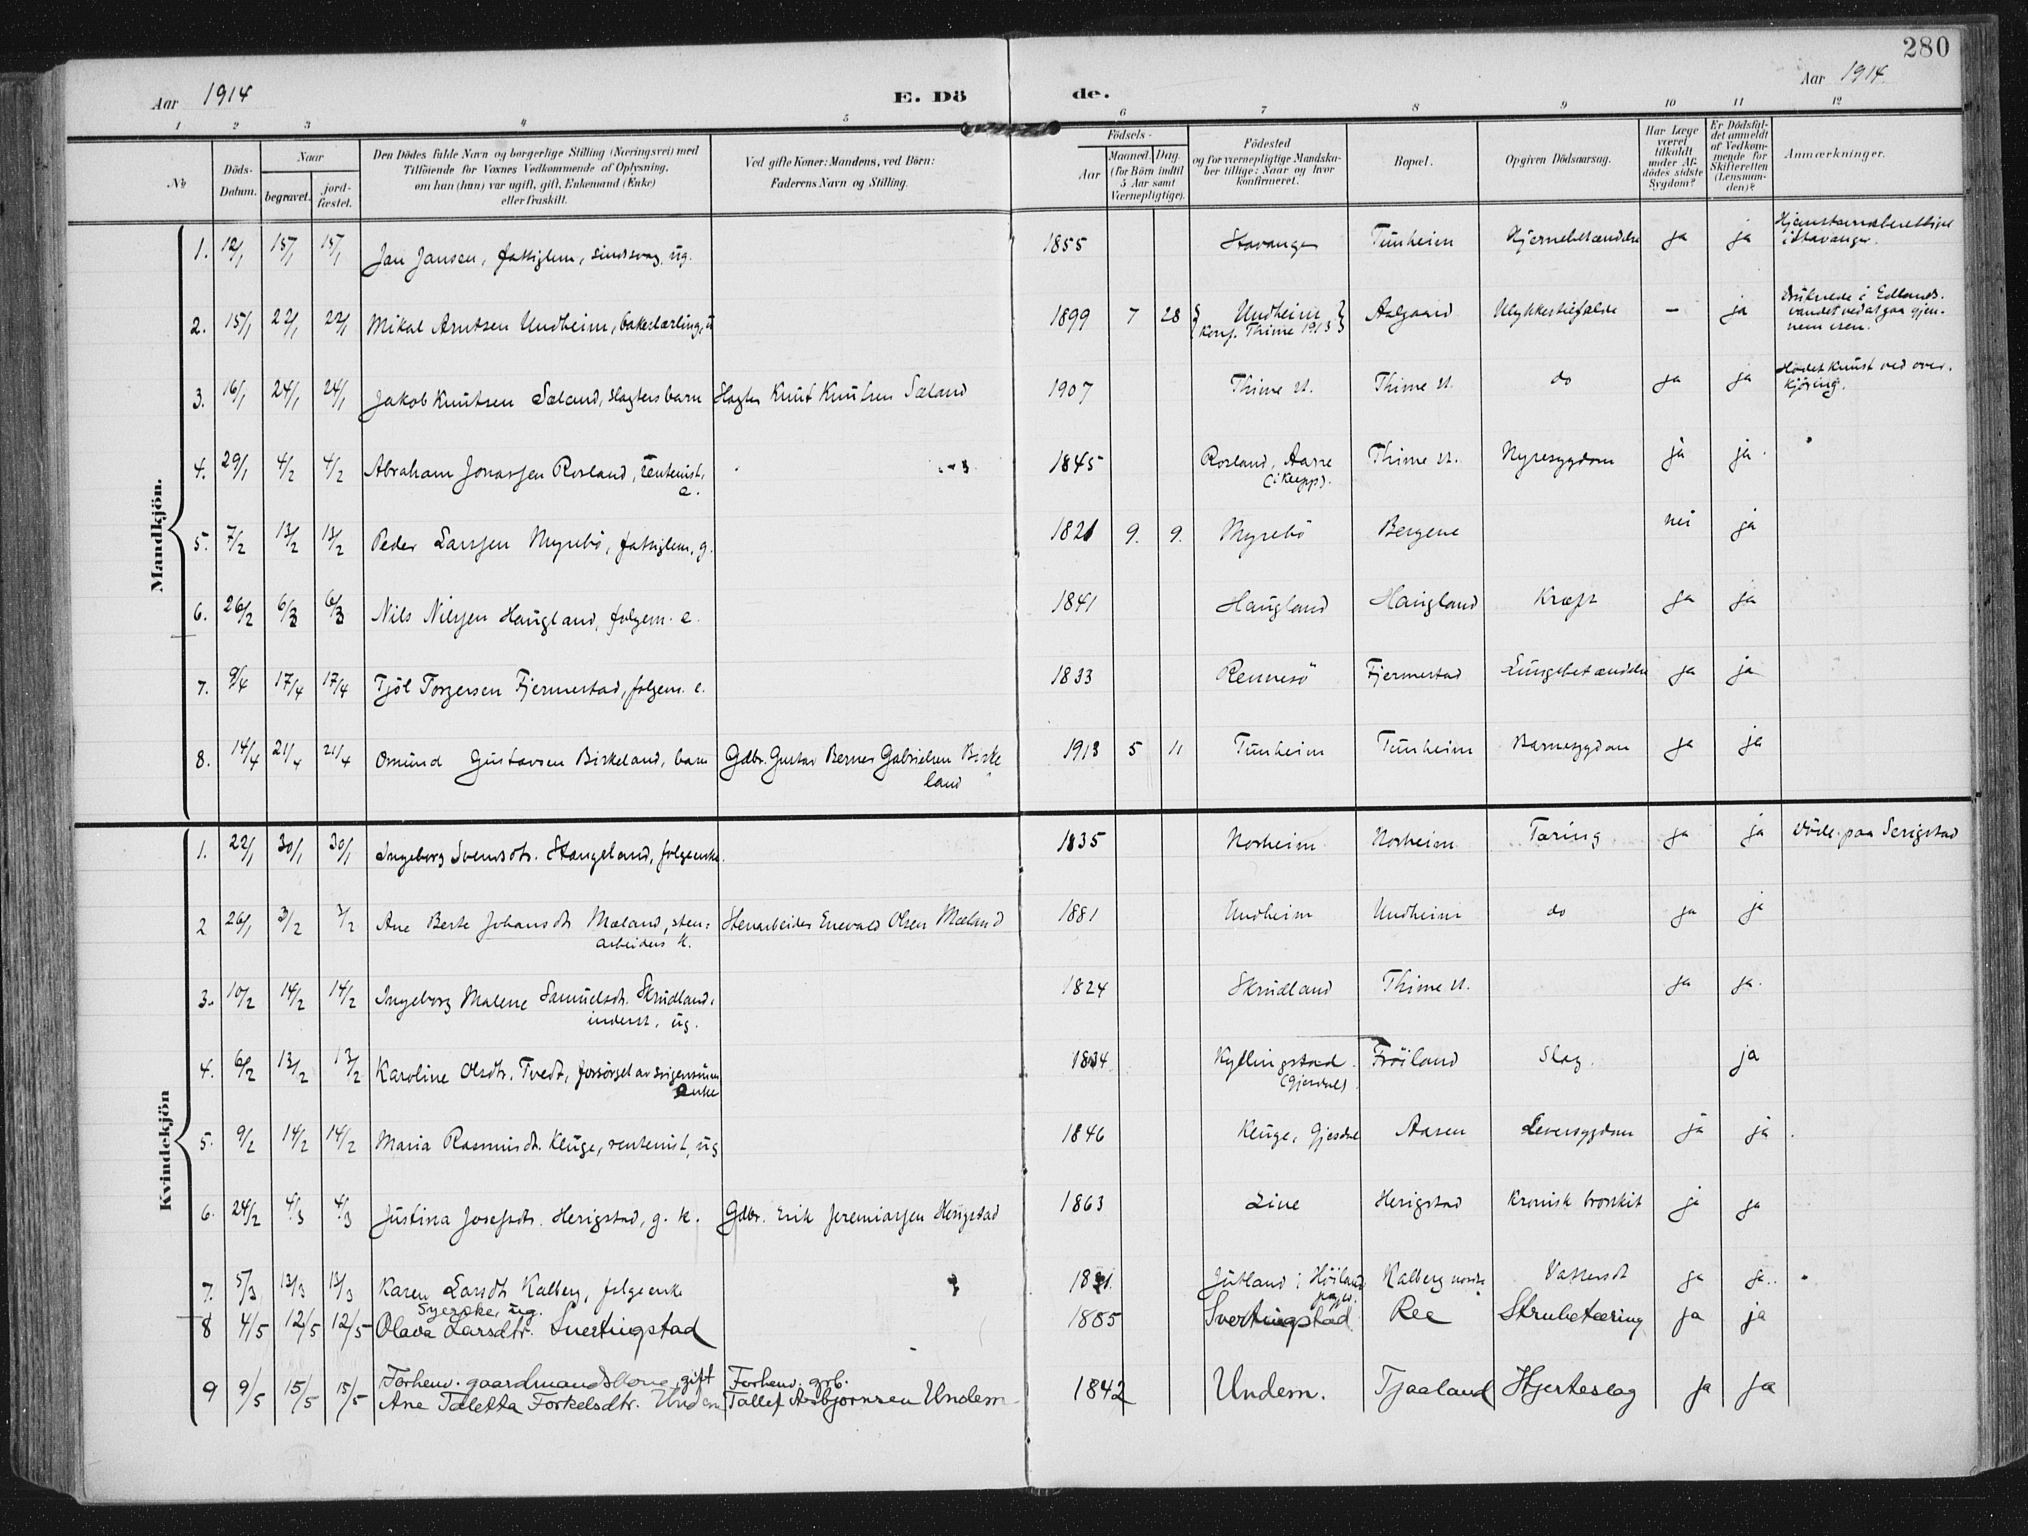 280
Aar 1914
E. Dö
de.
Aar 1914
1 2 3 4 5 6 7 8 9 10 11 12
No
Döds-
Datum.
Naar
begravet.
jord-
fæstet.
Den Dödes fulde Navn og borgerlige Stilling (Næringsvei) med
Tilföiende for Voxnes Vedkommende af Oplysning,
om han (hun) var ugift, gift, Enkemand (Enke)
eller fraskilt.
Ved gifte Koner: Mandens, ved Börn:
Faderens Navn og Stilling.
Födsels-
Aar
Maaned.
Dag.
(for Börn indtil
5 Aar samt
Værnepligtige).
Födested
og for værnepligtige Mandska-
ber tillige: Naar og hvor
konfirmeret.
Bopæl.
Opgiven Dödsaarsag.
Har Læge
været
tilkaldt
under Af-
dödes sidste
Sygdom?
Er Dödsfal-
det anmeldt
af Vedkom-
mende for
Skifteretten
(Lensman-
den)?
Anmærkninger.
Mandkjön.
1. 12/1 15/1 15/1 Jan Jansen, fattiglem, sindssvag, ug. 1855 Stavanger Tunheim Hjernebetændelse ja ja
i Stavanger.
2. 15/1 22/1 22/1 Mikal Arntsen Undheim, bakerlærling, u 1899 7 28 Undheim Aalgaard Ulykkestilfælde – ja Druknede i Edlands-
Konf. Thime 1913
vandet ved at gaa gjen-
nem isen.
3. 16/1 24/1 24/1 Jakob Knutsen Sæland, slagters barn Slagter Knut Knutsen Sæland 1907 Thime st. Thime st. do ja ja Hodet knust ved over-
kjöring.
4. 29/1 4/2 4/2 Abraham Jonassen Rosland, rentenist, 1845 Rosland, Aarre Thime st. Nyresygdom ja ja.
e.
(i Klepp).
5. 7/2 13/2 13/2 Peder Larssen Myrebö, fattiglem, g. 1821 9. 9. Myrebö Bergene nei ja
6. 26/2 6/3 6/3 Nils Nilssen Haugland, folgem. e. 1841 Haugland Haugland Kræft ja ja
7. 9/4 17/4 17/4 Tjöl Torgersen Fjermestad, folgem. e. 1833 Rennesö Fjermestad Lungebetændelse ja ja
8. 14/4 21/4 21/4 Omund Gustavsen Birkeland, barn Gdbr. Gustav Berner Gabrielsen Birke 1913 5 11 Tunheim Tunheim Barnesygdom ja ja
land
Kvindekjön
1. 22/1 30/1 30/1 Ingeborg Svensdtr. Stangeland, folgeenke. 1835 Norheim Norheim Tæring ja ja Döde paa Serigstad
2 26/1 3/2 3/2 Ane Berte Johansdtr Mæland, sten= Stenarbeider Enevald Olsen Mæland 1881 Undheim Undheim do ja ja
arbeiders k.
3. 10/2 14/2 14/2 Ingeborg Malene Samuelsdtr. Skrudland, 1824 Skrudland Thime st. ja ja.
inderst, ug.
4. 6/2 13/2 13/2 Karoline Olsdtr. Tvedt, forsörget av 1834 Kyllingstad Fröiland Slag. ja
enke
(Gjesdal)
5. 9/2 14/2 14/2 Maria Rasmusdtr. Kluge, rentenist, ug 1846 Kluge, Gjesdal Aasen Leversygdom ja ja.
6. 24/2 4/3 4/3 Justina Josefsdtr. Herigstad, g. k. Gdbr. Erik Jeremiassen Herigstad 1863 Line Herigstad Kronisk bronkit ja ja
7. 5/3 13/3 13/3 Karen Larsdtr Kalberg, folgeenke Jutland i Höiland Kalberg nordre Vattersot ja ja.
Syerske, ug.
8 4/5 12/5 12/5 Olava Larsdtr. Svertingstad 1885 Svertingstad Ree Strubetæring ja ja
Forhenv. gaardmandskone, gift Forhenv. grb.
9 9/5 15/5 15/5 Ane Taletta Torkelsdtr. Undem Tallef Asbjørnsen Undem 1842 Undem. Tjaaland Hjerteslag ja ja